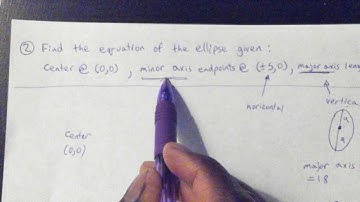 ② Find the equation of the ellipse given:
Center @ (0,0), minor axis endpoints @ (±5,0), major axis
horizontal
vertica
Center
(0,0)
a
a
major axis
=18